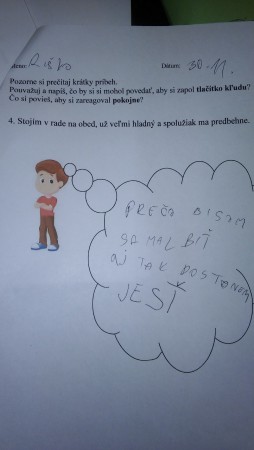 Meno: Riško Dátum: 30.11.
Pozorne si prečítaj krátky príbeh.
Pouvažuj a napíš, čo by si si mohol povedať, aby si zapol tlačítko kľudu?
Čo si povieš, aby si zareagoval pokojne?
4. Stojím v rade na obed, už veľmi hladný a spolužiak ma predbehne.
PREČO BISOM
SA MAL BIŤ
AJ TAK DOSTANEM
JESŤ